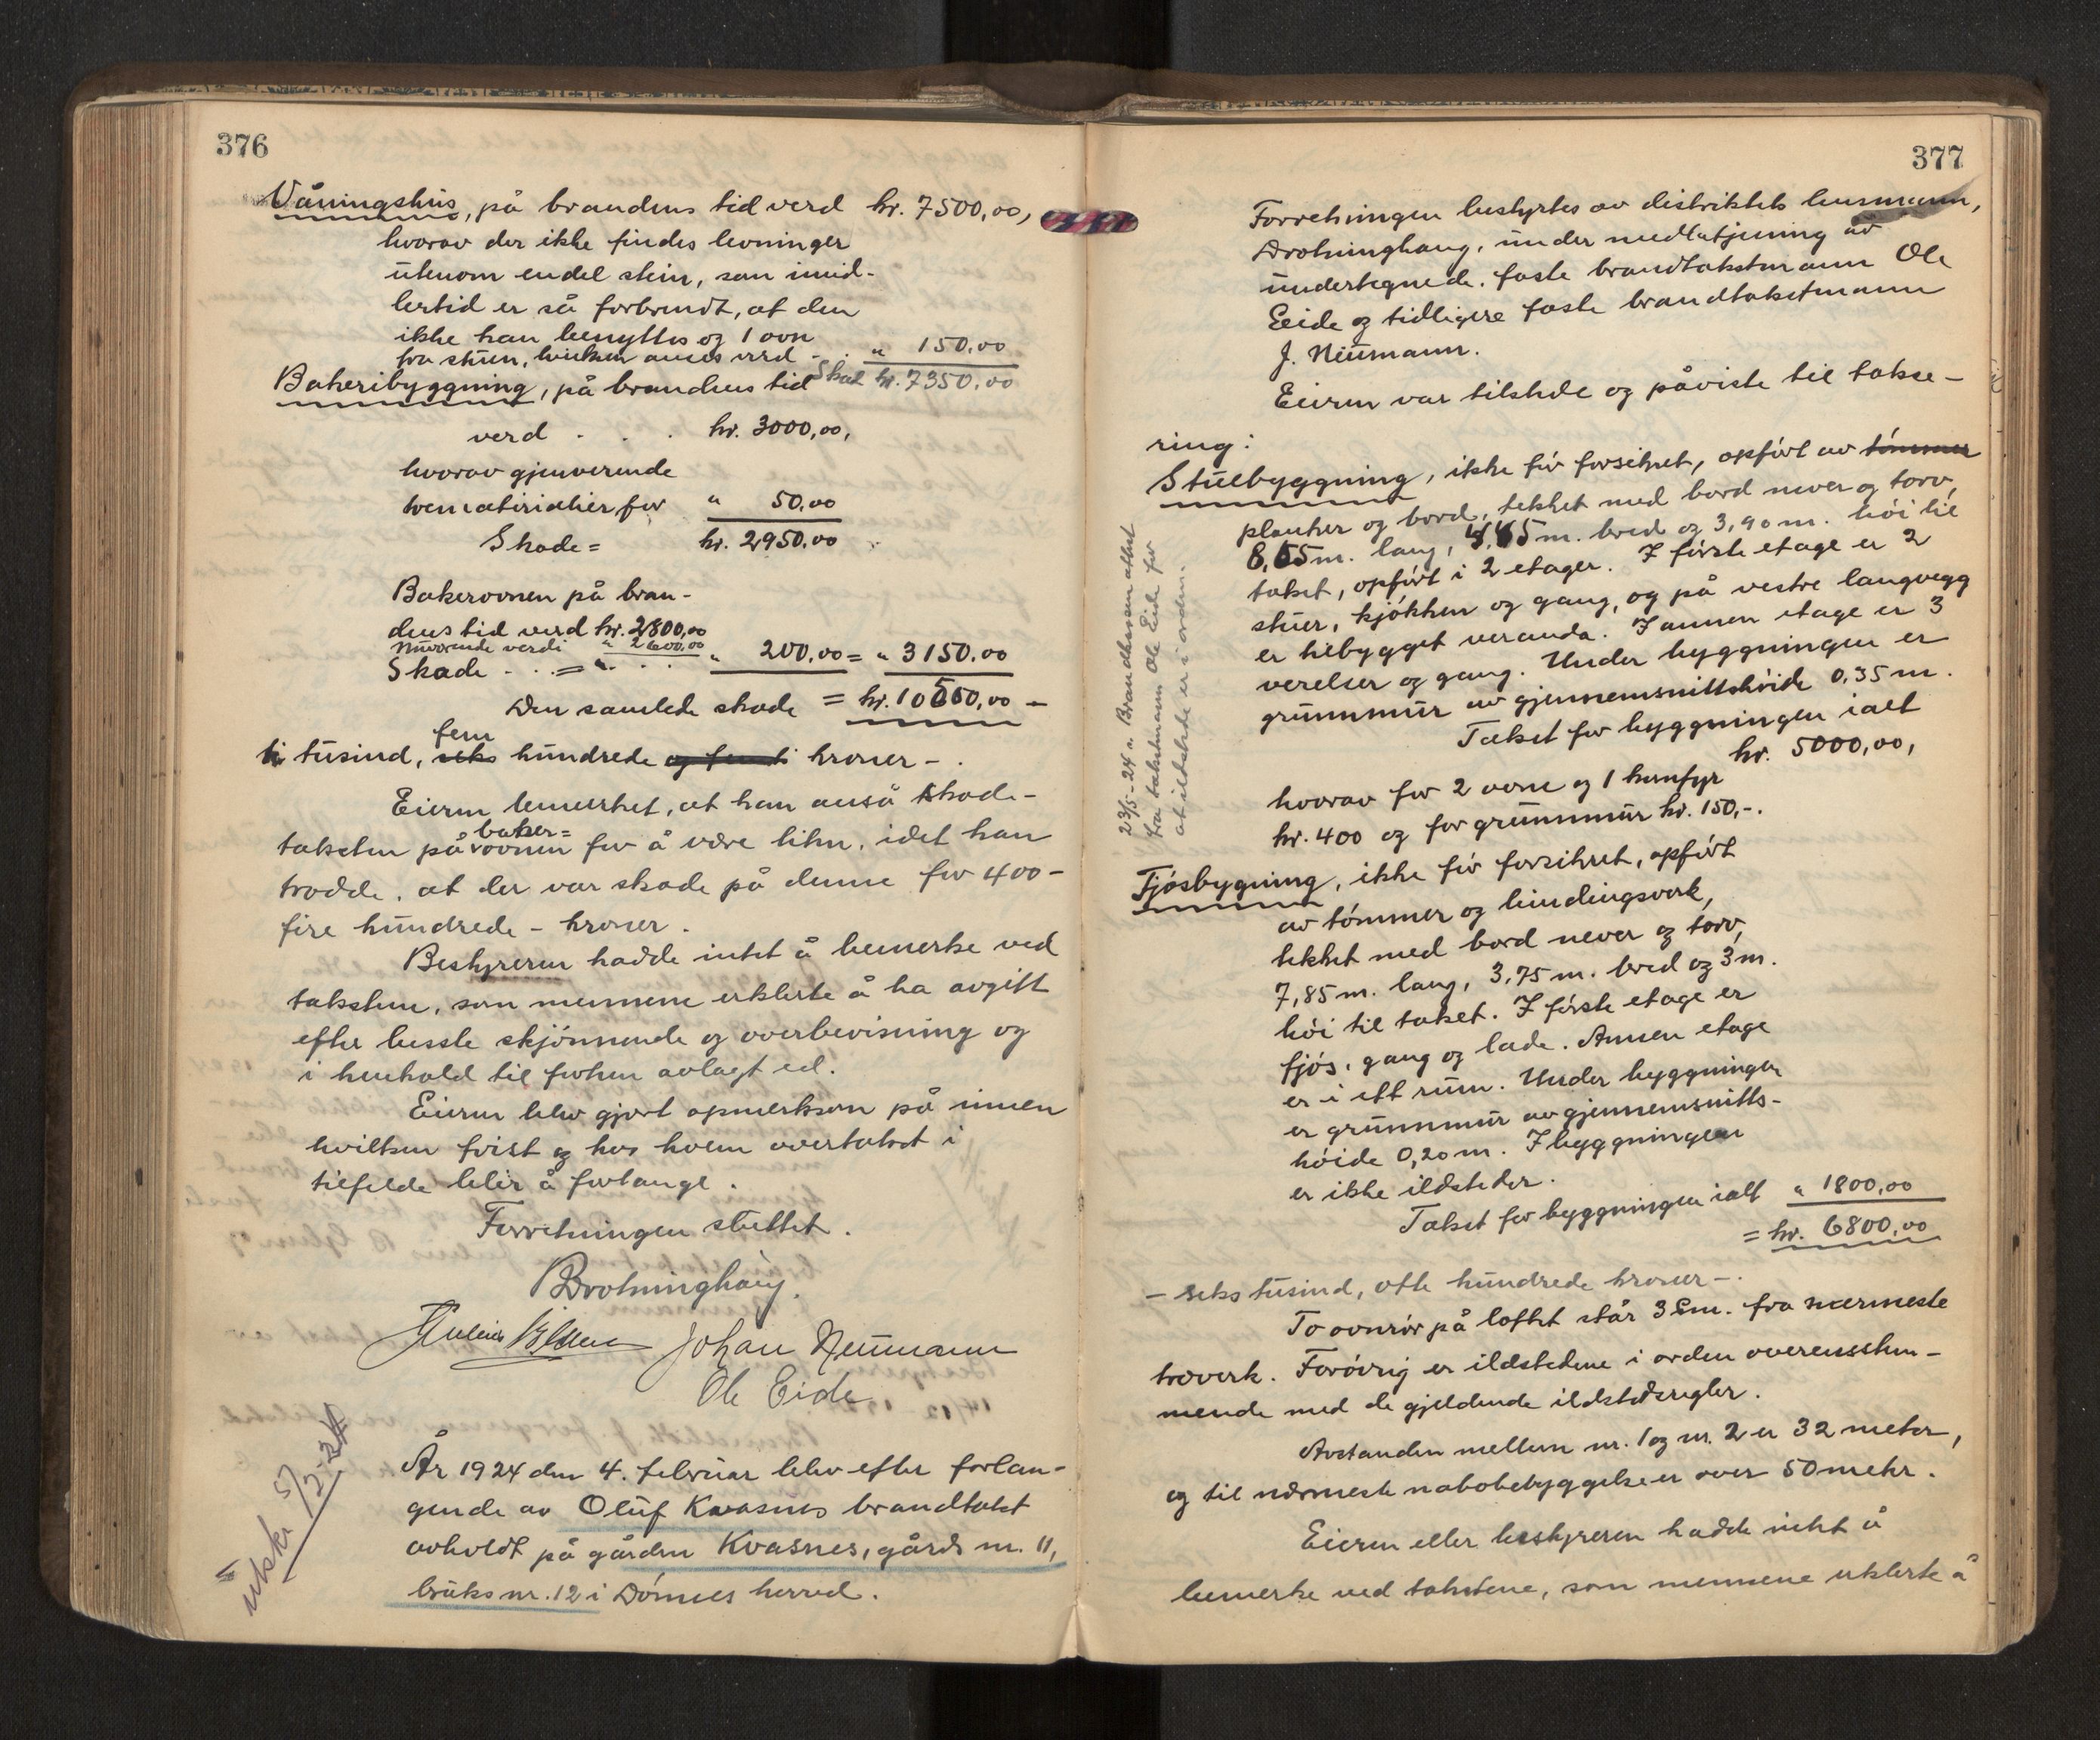 376
Våningshus, på brandens tid verd kr. 7500,00,
hvorav der ikke findes levninger
utenom endel stein, som imid-
lertid er så forbrendt, at den
ikke kan benyttes og 1 ovn
fra stuen, hvilken anses verd - . " 150,00
Skade kr. 7350,00
Bakeribyggning, på brandens tid
verd . . . kr. 3000,00,
hvorav gjenverende
trematerialier for " 50,00
Skade = kr. 2950,00
Bakerovnen på bran-
dens tid verd kr. 2800,00
Nuverende verdi " 2600,00
Skade . . = " . . . " 200,00 = " 3150,00
Den samlede skade = kr. 10500,00 -
ti tusind, seks fem hundrede og femti kroner - .
Eieren bemerket, at han anså skade-
taksten på baker=ovnen for å være liten, idet han
trodde, at der var skade på denne for 400 -
fire hundrede - kroner.
Bestyreren hadde intet å bemerke ved
takstene, som mennene erklerte å ha avgitt
efter beste skjønnende og overbevisning og
i henhold til forhen avlagt ed.
Eieren blev gjort opmerksom på innen
hvilken frist og hos hvem overtakst i
tilfelde blir å forlange.
Forretningen sluttet.
Drotninghaug.
Johan Neumann
Ole Eide
År 1924 den 4. februar blev efter forlan-
gende av Oluf Kvasnes brandtakst
avholdt på gården Kvasnes, gårds nr. 11,
bruks nr. 12 i Dønnes herred.
utskr. 5/3-24
377
Forretningen bestyrtes av distriktets lensmann,
Drotninghaug, under medbetjening av
undertegnede, faste brandtakstmann Ole
Eide og tidligere faste brandtakstmann
J. Neumann.
Eieren var tilstede og påviste til takse-
ring:
Stuebyggning, ikke før forsikret, opført av tømmer
planker og bord, tekket med bord never og torv,
8,65 m. lang, 4,65 m. bred og 3,90 m. høi til
taket, opført i 2 etager. I første etage er 2
stuer, kjøkken og gang, og på vestre langvegg
er tilbygget veranda. I annen etage er 3
verelser og gang. Under byggningen er
grunnmur av gjennemsnittshøide 0,35 m.
Takst for byggningen ialt
kr. 5000,00,
hvorav for 2 ovne og 1 komfyr
kr. 400 og for grunnmur kr. 150,-.
23/5-24 n. Brandkassen attest
fra takstmann Ole Eide for
at ildstedet er i orden.
Fjøsbygning, ikke før forsikret, opført
av tømmer og bindingsverk,
tekket med bord never og torv,
7,85 m. lang, 3,75 m. bred og 3 m.
høi til taket. I første etage er
fjøs, gang og lade. Annen etage
er i ett rum. Under byggningen
er grunnmur av gjennemsnitts-
høide 0,20 m. I byggningen
er ikke ildsteder.
Takst for byggningen ialt " 1800,00
= kr. 6800,00
- seks tusind, otte hundrede kroner - .
To ovnsrør på loftet står 3 cm. fra nærmeste
treverk. Forøvrig er ildstedene i orden overensstem-
mende med de gjeldende ildstedsregler.
Avstanden mellem nr. 1 og nr. 2 er 32 meter,
og til nærmeste nabobebyggelse er over 50 meter.
Eieren eller bestyreren hadde intet å
bemerke ved takstene, som mennene erklerte å